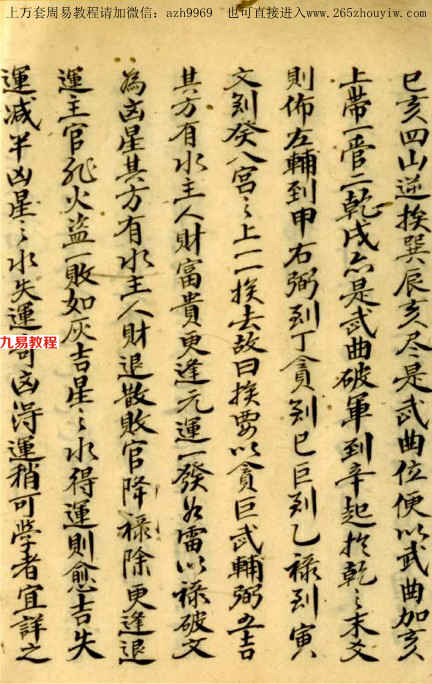 上万套周易教程请加微信：azh9969 也可直接进入www.265zhouyiw.com
巳亥四山逆挨巽辰亥尽是武曲位便以武曲加亥
上帶一管二乾戌亦是武曲破軍到辛起於乾之末爻
則佈左輔到甲右弼到丁貪到巳巨到乙禄到寅
文到癸八宮之上一一挨去故曰挨要以貪巨武輔弼五吉
其方有水主人財富貴更逢元運一發如雷以禄破文
為凶星其方有水主人財退散敗官降禄除更逢退
運主官非火盜一敗如灰吉星之水得運則愈吉失
運減半凶星之水失運奇凶得運稍可學者宜詳之
九易教程